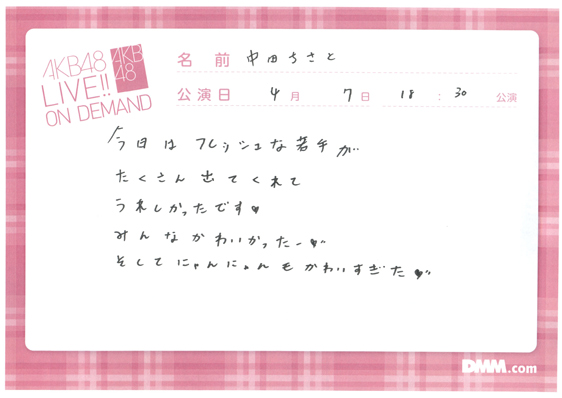 AKB48
LIVE!!
ON DEMAND
AKB
48
名前 中田ちさと
公演日 4月 7日 18:30 公演
今日は フレッシュな若手が
たくさん出てくれて
うれしかったです♥
みんなかわいかったー♥
そしてにゃんにゃんもかわいすぎた♥
DMM.com